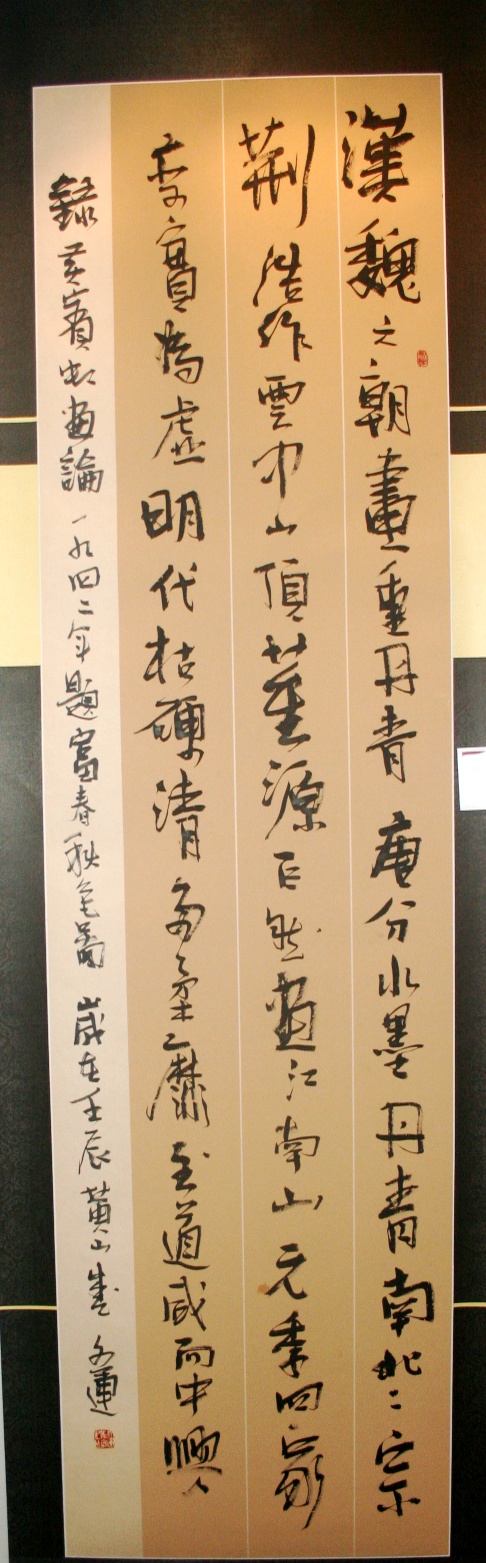 漢魏之朝畫重丹青唐分水墨丹青南北二宗
荆浩作雲中山頂董源巨然畫江南山元季四家
變實為虛明代枯硬清多柔靡至道咸而中興
錄黃賓虹畫論一九四二年題富春秋色圖歲在壬辰黃山